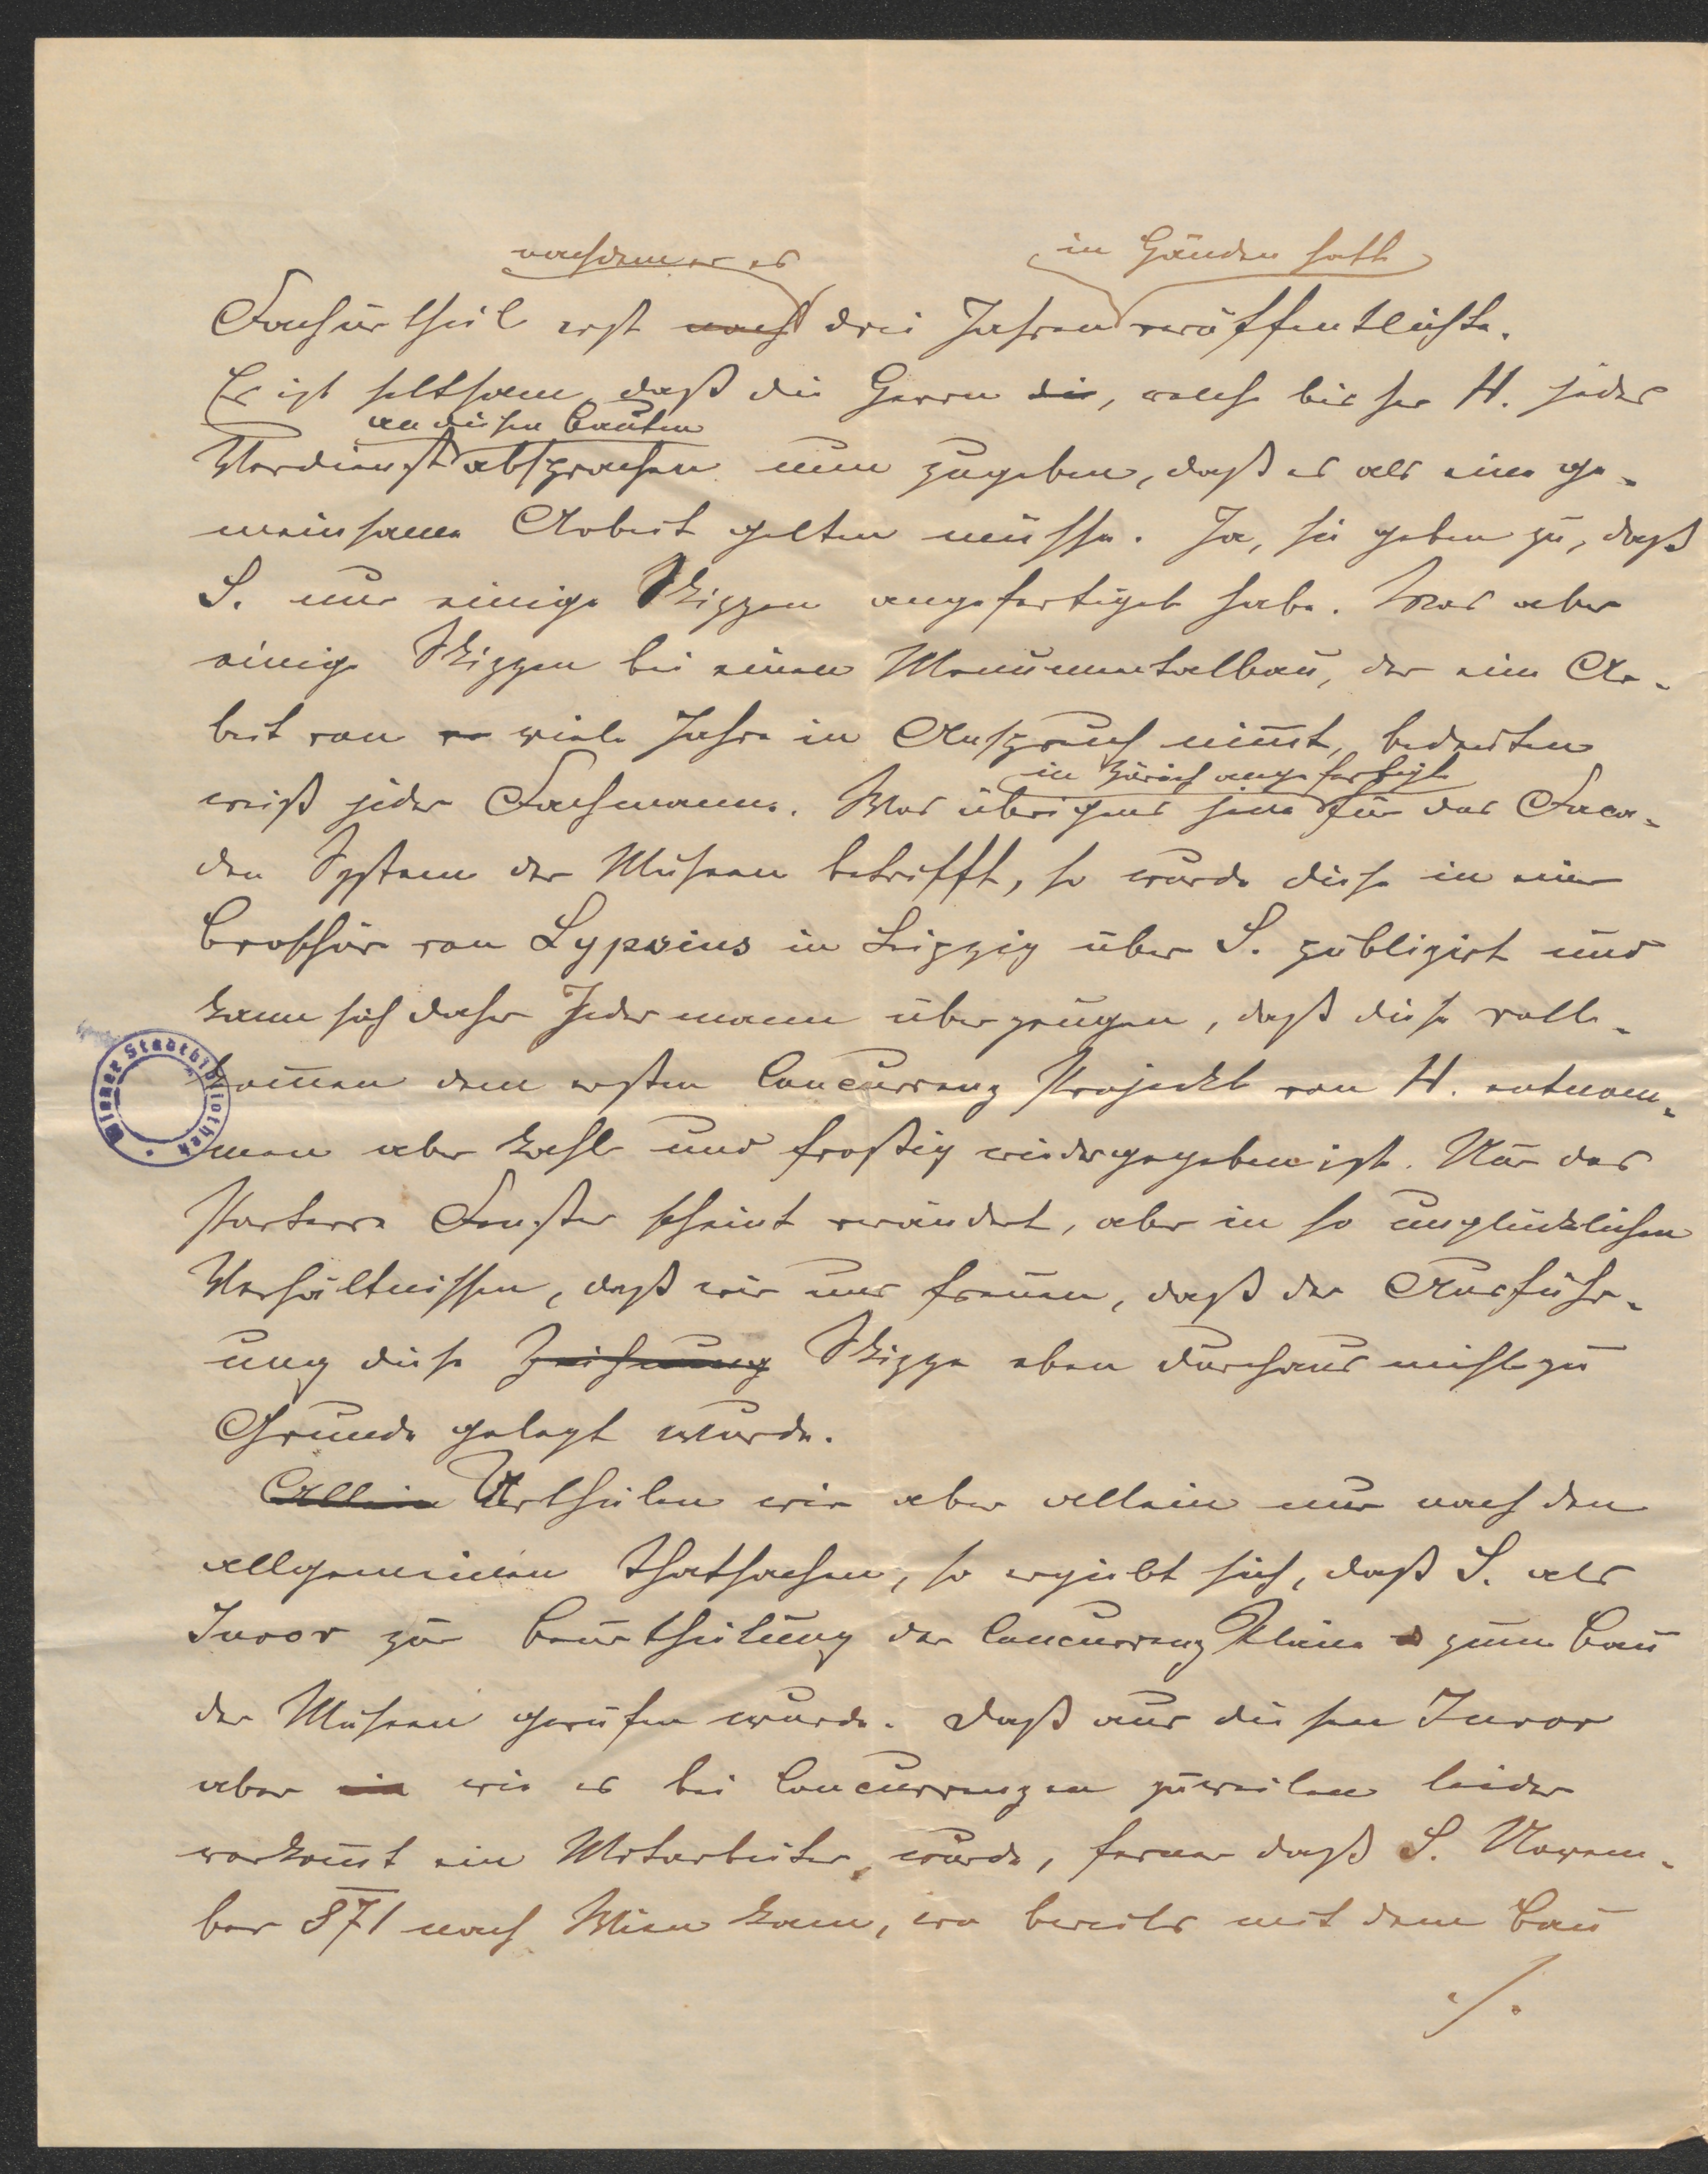 nachdem er es in Händen hatte
Fachurtheil erst nach drei Jahren veröffentlichte.
Es ist seltsam daß die Herrn die, welche bis her H. jedes
an diesen Bauten
Verdienst absprachen nun zugeben, daß es als eine ge-
meinsame Arbeit gelten müsse. Ja, sie geben zu, daß
S. nur einige Skizzen angefertiget habe. Was aber
einige Skizzen bei einem Monumentalbau, der eine Ar-
beit von so viele Jahre in Anspruch nimt, bedeuten
in Zürich angefertigte
weiß jeder Fachmann. Was übrigens jene für das Faca-
den System der Museen betrifft, so wurde diese in einer
Broschüre von Lypsius in Leipzig über S. publizirt und
kann sich daher Jedermann überzeugen, daß diese voll-
komen dem ersten Concurrenz Projekt von H. entnom-
men aber kahl und frostig wiedergegeben ist. Nur das
Parterre Fenster scheint verändert, aber in so unglücklichen
Verhältnissen, daß wir uns freuen, daß der Ausführ-
ung diese Zeichnung Skizze eben durchaus nicht zu
Grunde gelegt wurde.
Allein Urtheilen wir aber allein nur nach den
allgemeinen Thatsachen, so ergiebt sich, daß S. als
Juror zur Beurtheilung der Concurrenz Pläne zum Bau
der Museen gerufen wurde. Daß aus diesem Juror
aber ein wie es bei Concurrenzen zuweilen leider
vorkomt ein Mitarbeiter wurde, ferner daß S. Novem-
ber 871 nach Wien kam, wo bereits mit dem Bau
./.
Wiener Stadtbibliothek